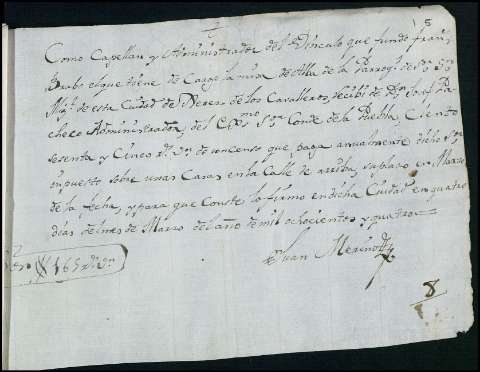 8
Como Capellan y Administrador del Vinculo que fundó
que tiene de Carga la misa de Alba de la Parroq.l de S.n
Mig.l de esta Ciudad de Xerez de los Cavalleros, Recibí de D.n Pa
checo Administrador del Ex.mo S.or Conde de la Puebla, Ciento
sesenta y Cinco r.s v.n de un censo que paga anualmente dicho S.or
impuesto sobre unas Casas en la Calle de arriba, su plazo en Marzo
de la fecha, y para que Conste lo firmo en dicha Ciudad en quatro
dias del mes de Marzo del año de mil ochocientos y quatro=
Juan Merino
165 r.s v.n
8